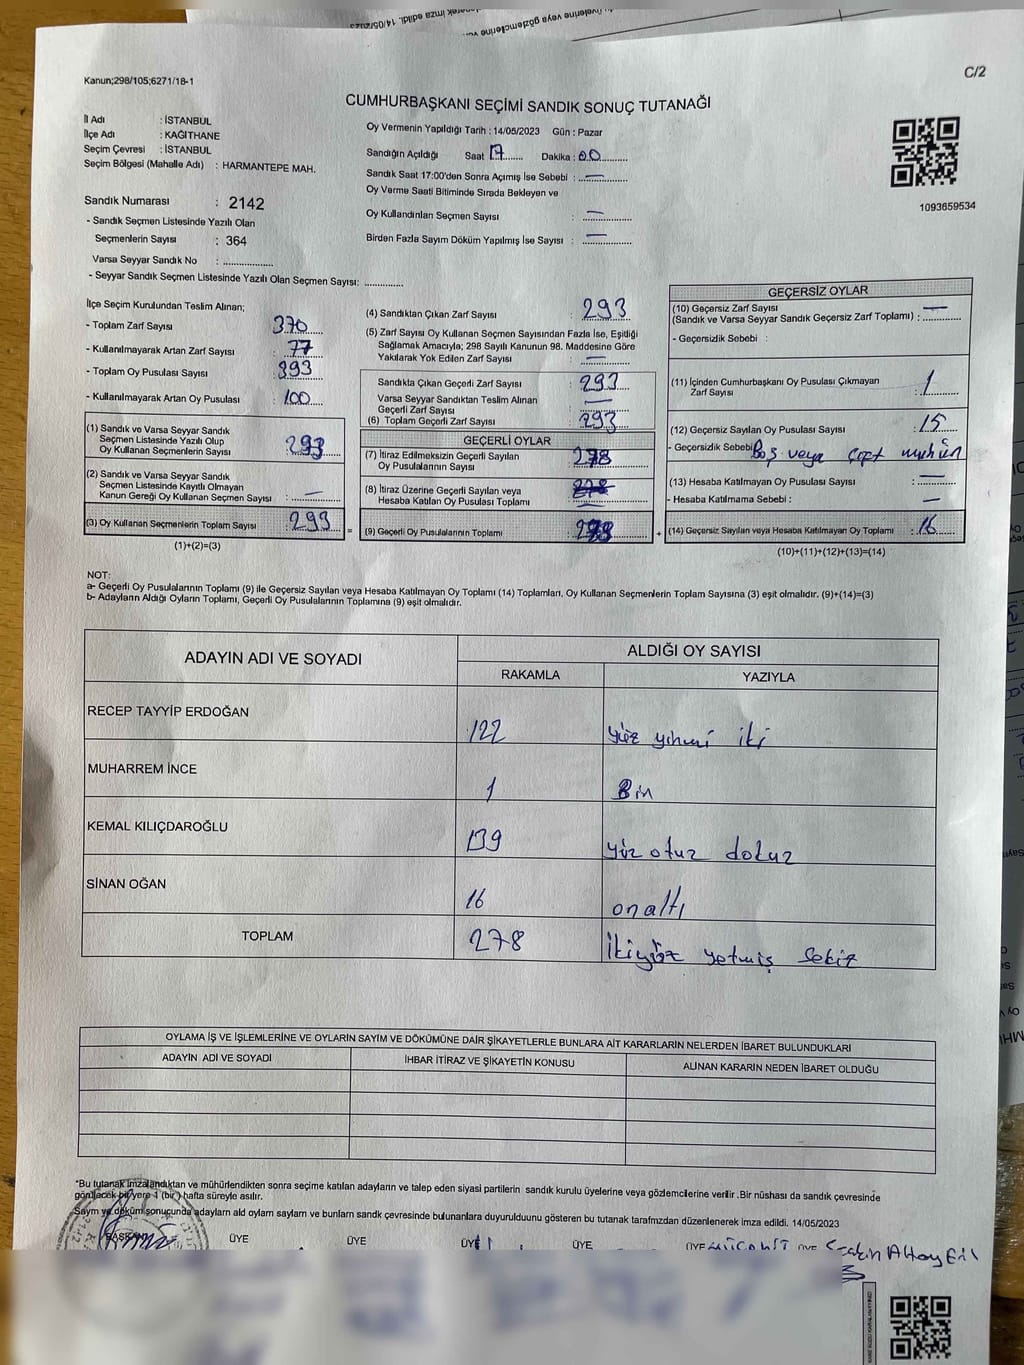 Kanun;298/105;6271/18-1
C/2
CUMHURBAŞKANI SEÇİMİ SANDIK SONUÇ TUTANAĞI
İl Adı : İSTANBUL
İlçe Adı : KAĞITHANE
Seçim Çevresi : İSTANBUL
Seçim Bölgesi (Mahalle Adı) : HARMANTEPE MAH.
Sandık Numarası : 2142
- Sandık Seçmen Listesinde Yazılı Olan
Seçmenlerin Sayısı : 364
Varsa Seyyar Sandık No : ..............
- Seyyar Sandık Seçmen Listesinde Yazılı Olan Seçmen Sayısı: ..............
Oy Vermenin Yapıldığı Tarih : 14/05/2023 Gün : Pazar
Sandığın Açıldığı Saat 17 Dakika : 00
Sandık Saat 17:00'den Sonra Açımış İse Sebebi : —
Oy Verme Saati Bitiminde Sırada Bekleyen ve
Oy Kullandırılan Seçmen Sayısı : —
Birden Fazla Sayım Döküm Yapılmış İse Sayısı : —
1093659534
İlçe Seçim Kurulundan Teslim Alınan;
- Toplam Zarf Sayısı 370
- Kullanılmayarak Artan Zarf Sayısı : 77
- Toplam Oy Pusulası Sayısı : 393
- Kullanılmayarak Artan Oy Pusulası : 100
(1) Sandık ve Varsa Seyyar Sandık
Seçmen Listesinde Yazılı Olup
Oy Kullanan Seçmenlerin Sayısı : 293
(2) Sandık ve Varsa Seyyar Sandık
Seçmen Listesinde Kayıtlı Olmayan
Kanun Gereği Oy Kullanan Seçmen Sayısı : —
(3) Oy Kullanan Seçmenlerin Toplam Sayısı : 293
(1)+(2)=(3)
(4) Sandıktan Çıkan Zarf Sayısı : 293
(5) Zarf Sayısı Oy Kullanan Seçmen Sayısından Fazla İse, Eşitliği
Sağlamak Amacıyla; 298 Sayılı Kanunun 98. Maddesine Göre
Yakılarak Yok Edilen Zarf Sayısı : —
Sandıkta Çıkan Geçerli Zarf Sayısı : 293
Varsa Seyyar Sandıktan Teslim Alınan
Geçerli Zarf Sayısı : —
(6) Toplam Geçerli Zarf Sayısı : 293
GEÇERLİ OYLAR
(7) İtiraz Edilmeksizin Geçerli Sayılan
Oy Pusulalarının Sayısı : 278
(8) İtiraz Üzerine Geçerli Sayılan veya
Hesaba Katılan Oy Pusulası Toplamı : —
(9) Geçerli Oy Pusulalarının Toplamı : 278
GEÇERSİZ OYLAR
(10) Geçersiz Zarf Sayısı
(Sandık ve Varsa Seyyar Sandık Geçersiz Zarf Toplamı) : —
- Geçersizlik Sebebi :
(11) İçinden Cumhurbaşkanı Oy Pusulası Çıkmayan
Zarf Sayısı : 1
(12) Geçersiz Sayılan Oy Pusulası Sayısı : 15
- Geçersizlik Sebebi Boş veya çift mühür
(13) Hesaba Katılmayan Oy Pusulası Sayısı : —
- Hesaba Katılmama Sebebi : —
(14) Geçersiz Sayılan veya Hesaba Katılmayan Oy Toplamı : 16
(10)+(11)+(12)+(13)=(14)
NOT:
a- Geçerli Oy Pusulalarının Toplamı (9) ile Geçersiz Sayılan veya Hesaba Katılmayan Oy Toplamı (14) Toplamları, Oy Kullanan Seçmenlerin Toplam Sayısına (3) eşit olmalıdır. (9)+(14)=(3)
b- Adayların Aldığı Oyların Toplamı, Geçerli Oy Pusulalarının Toplamına (9) eşit olmalıdır.
ADAYIN ADI VE SOYADI ALDIĞI OY SAYISI
RAKAMLA YAZIYLA
RECEP TAYYİP ERDOĞAN 122 yüz yirmi iki
MUHARREM İNCE 1 Bir
KEMAL KILIÇDAROĞLU 139 yüz otuz dokuz
SİNAN OĞAN 16 onaltı
TOPLAM 278 ikiyüz yetmiş sekiz
OYLAMA İŞ VE İŞLEMLERİNE VE OYLARIN SAYIM VE DÖKÜMÜNE DAİR ŞİKAYETLERLE BUNLARA AİT KARARLARIN NELERDEN İBARET BULUNDUKLARI
ADAYIN ADI VE SOYADI İHBAR İTİRAZ VE ŞİKAYETİN KONUSU ALINAN KARARIN NEDEN İBARET OLDUĞU
*Bu tutanak imzalandıktan ve mühürlendikten sonra seçime katılan adayların ve talep eden siyasi partilerin sandık kurulu üyelerine veya gözlemcilerine verilir .Bir nüshası da sandık çevresinde
görülecek bir yere 1 (bir ) hafta süreyle asılır.
Sayım ve döküm sonucunda adayların ald oyların sayların ve bunların sandk çevresinde bulunanlara duyurulduunu gösteren bu tutanak tarafmzdan düzenlenerek imza edildi. 14/05/2023
BAŞKAN ÜYE ÜYE ÜYE ÜYE ÜYE ÜYE